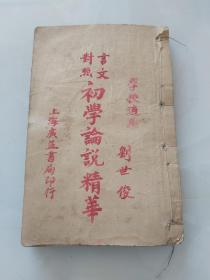 學校適用
劉世俊
言文對照
初學論說精華
上海廣益書局印行